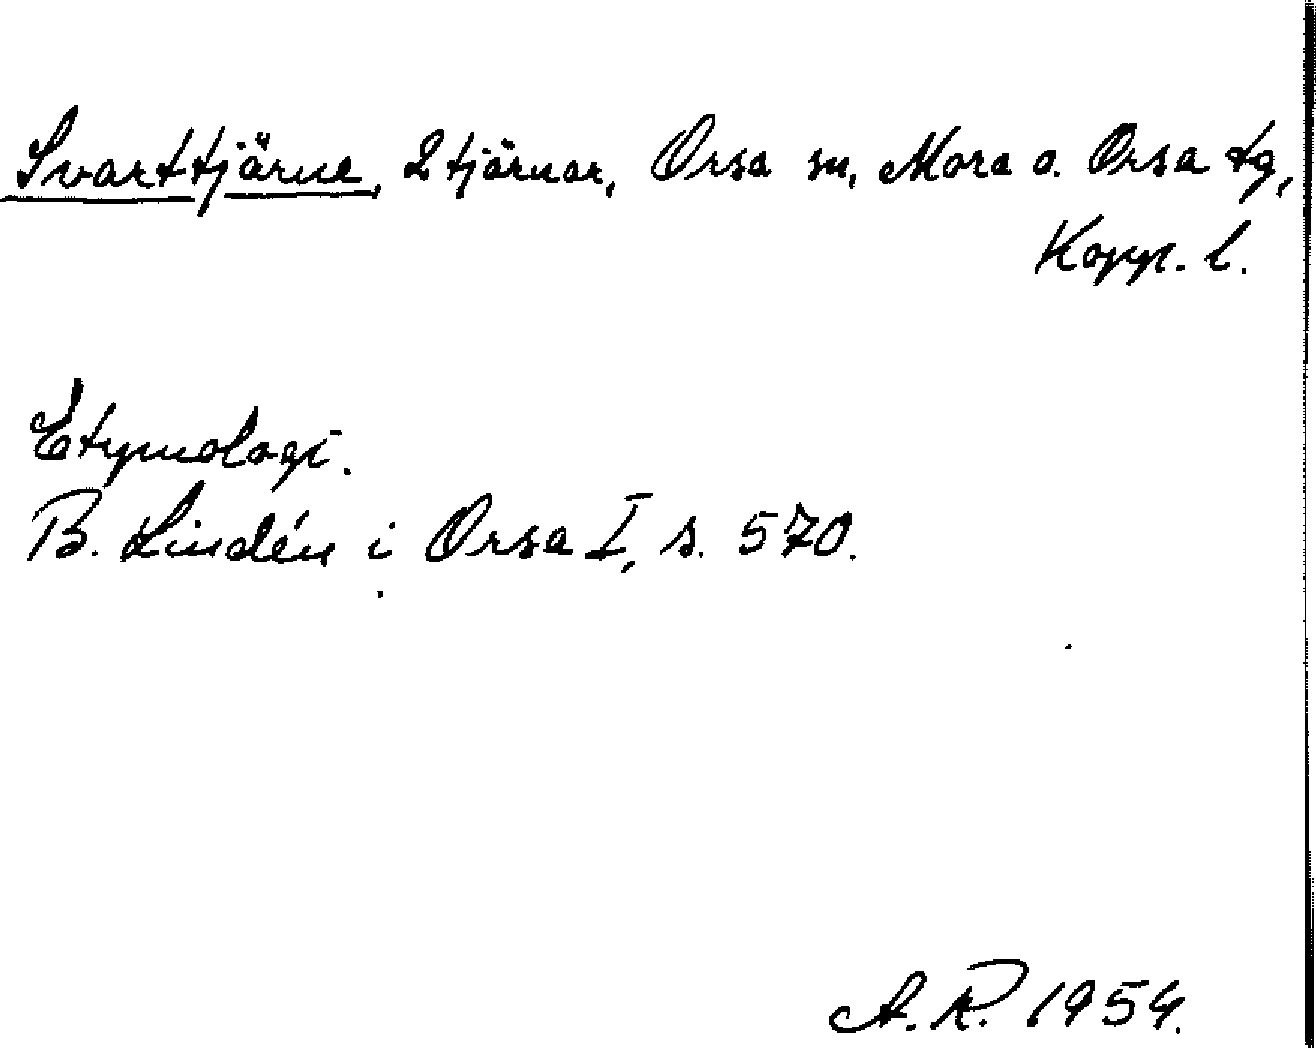 Svarttjärne, 2 tjärnar, Orsa sn, Mora o. Orsa tg,
Kopp. l.
Etymologi.
B. Lindén i Orsa I, s. 570.
A.R. 1954.